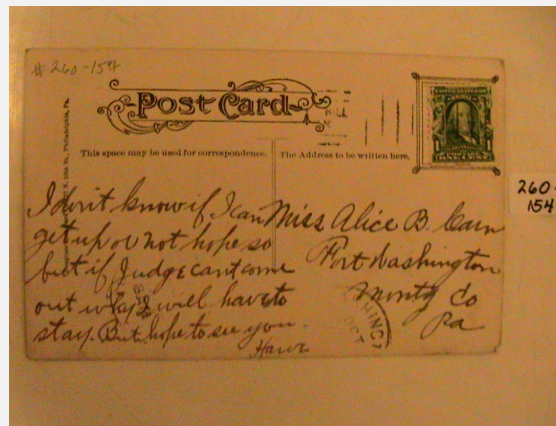 # 260-154
Post Card
This space may be used for correspondence.
The Address to be written here.
260-
154
I don't know if I can
get up or not hope so
but if Judge cant come
out why I will have to
stay. But hope to see you.
Miss Alice B. Cain
Fort Washington
Montg Co
Pa
Philadelphia, Pa.
OCT